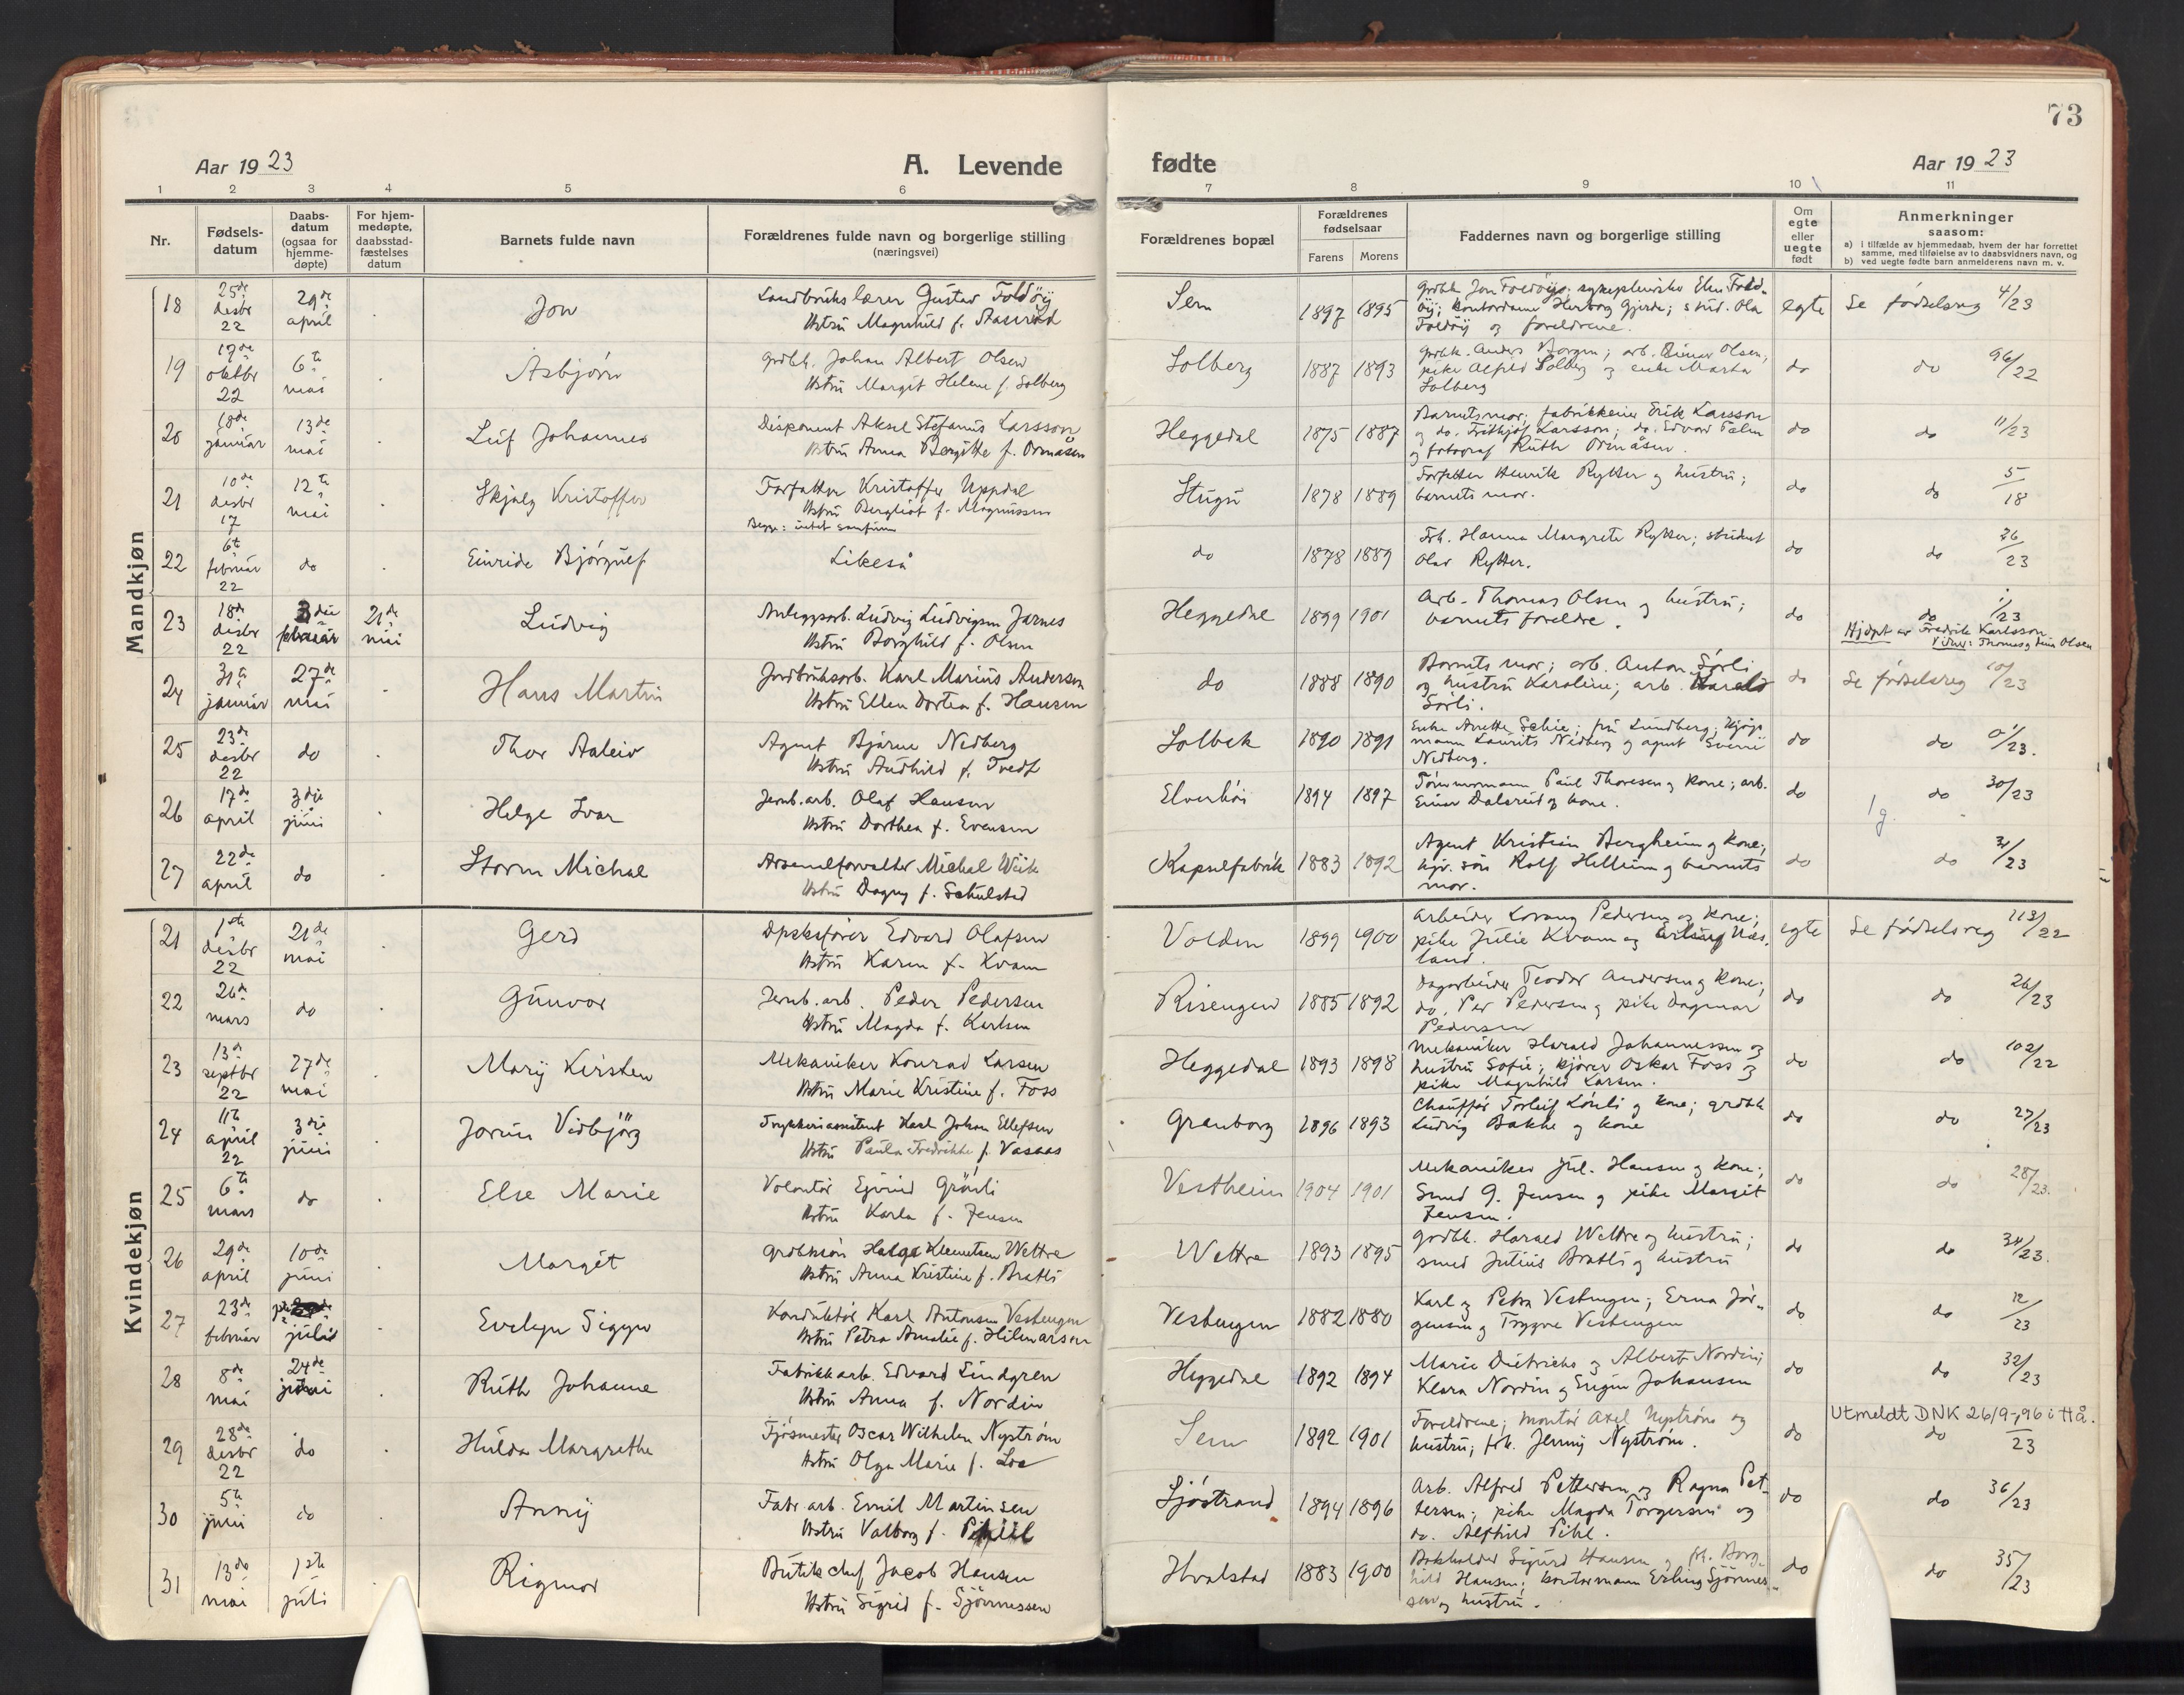 73
Aar 19 23
A. Levende
fødte
Aar 19 23
1 2 3 4 5 6 7 8 9 10 11
Nr.
Fødsels-
datum
Daabs-
datum
(ogsaa for
hjemme-
døpte)
For hjem-
medøpte,
daabsstad-
fæstelses
datum
Barnets fulde navn
Forældrenes fulde navn og borgerlige stilling
(næringsvei)
Forældrenes bopæl
Forældrenes
fødselsaar
Farens Morens
Faddernes navn og borgerlige stilling
Om
egte
eller
uegte
født
Anmerkninger
saasom:
a) i tilfælde av hjemmedaab, hvem der har forrettet
samme, med tilføielse av to daabsvidners navn, og
b) ved uegte fødte barn anmelderens navn m. v.
Mandkjøn
18 25de desbr 22 29de april Jon
Landbrukslærer Gustav Foldöy
Hstru Magnhild f.
Sem 1897 1895
Foldöy og foreldrene.
egte Se fødselsreg 4/23
19 17de oktbr 22 6te mai Asbjörn
Grdbk. Johan Albert Olsen
Hstru Margit Helene f. Solberg
Solberg 1887 1893
Grdbk. Anders Borgen; arb. Einar Olsen,
pike Alfhild Solberg og enke Marta
Solberg
do do 96/22
20 18de januar 13de mai Leif Johannes
Disponent Aksel Stefanus Larsson
Hstru Anna Bergitte f. Ormåsen
Heggedal 1875 1887
Barnets mor; fabrikkeier Erik Larsson
og do. Frithjof Larsson; do. Edvard Palm
og fotograf Ruth Ormåsen.
do do 11/23
21 10de desbr 17 12te mai Skjalg Kristoffer
Forfatter Kristoffer Uppdal
Hstru Bergliot f. Magnussen
Begge: intet samfunn
Stugu 1878 1889
Forfatter Henrik Rytter og hustru;
barnets mor.
do do 5/18
22 6te februar 22 do Einride Bjórgulf
Likeså
do 1878 1889
Frk. Hanna Margrete Rytter; student
Olav Rytter.
do do 36/23
23 18de desbr 22 3die februar 21de mai Ludvig
Anleggsarb. Ludvig Ludvigsen Jarnes
Hstru Borghild f. Olsen
Heggedal 1899 1901
Arb. Thomas Olsen og hustru;
barnets foreldre.
do do 1/23
Hjdpt av Fredrik Karlsson
Vidner: Thomas og Olsen
24 31te januar 27de mai Hans Martin
Jordbruksarb. Karl Marius Andersen
Hstru Ellen Dortea f. Hansen
do 1888 1890
Barnets mor; arb. Anton Sörli
og hustru Karoline; arb. Harald
Sörli.
do Se fødselsreg 10/23
25 23de desbr 22 do Thor Aaleiv
Agent Bjarne Nedberg
Hstru Audhild f. Tvedt
Solbek 1890 1891
Enke Anette Schie; fru Lundberg; kjøp-
mann Laurits Nedberg og agent Sverre
Nedberg.
do do /23.
26 17de april 3dje juni Helge Ivar
Jernb.arb. Olaf Hansen
Hstru Dorthea f. Evensen
Elverhöi 1894 1897
Tömmermann Paul Thoresen og kone; arb.
Einar Dalsrud og kone.
do 1g. do 30/23
27 22de april do Storm Michal
Arsenalforvalter Michal Wiik
Hstru Dagny f. Schulstad
Kapselfabrik 1883 1892
Agent Kristian Bergheim og kone;
hjv. sön Rolf Helliem og barnets
mor.
do do 31/23
Kvindekjøn
21 1ste desbr 22 21de mai Gerd
Edvard Olafsen
Hstru Karen f. Kvam
Volden 1899 1900
Arbeider Lorang Pedersen og kone;
pike Julie Kvam og Erling
land.
egte Se fødselsreg 113/22
22 26de mars do Gunvor
Jernb.arb. Peder Pedersen
Hstru Magda f. Karlsen
Risengen 1885 1892
Dagarbeider Teodor Andersen og kone;
do. Per Pedersen og pike Dagmar
Pedersen
do do 26/23
23 13de septbr 22 27de mai Mary Kirsten
Mekaniker Konrad Larsen
Hstru Marie Kristine f. Foss
Heggedal 1893 1898
Mekaniker Harald Johannessen og
hustru Sofie; kjører Oskar Foss og
pike Magnhild Larsen.
do do 102/22
24 11te april 22 3die juni Jorun Vidbjörg
Trykkeriassistent Karl Johan Ellefsen
Hstru Paula Fredrikke f. Vasaas
Granborg 1896 1893
Chauffør Torleif Lönli og kone; grdbk
Ludvig Bakke og kone
do do 27/23
25 6te mars do Else Marie
Volontör Ejvind Grönli
Hstru Karla f. Jensen
Vestheim 1904 1901
Mekaniker Jul. Hansen og kone;
Smed G. Jensen og pike Margit
Jensen.
do do 28/23.
26 29de april 10de juni Margit
Grdbksön Helge Klemetsen Wettre
Hstru Anna Kristine f. Bratli
Wettre 1893 1895
Grdbk. Harald Wettre og hustru;
smed Julius Bratli og hustru
do do 34/23.
27 23de februar juli Evelyn Sigyn
Konduktör Karl Antonsen Vestengen
Hstru Petra Amalie f. Hilmarsen
Vestengen 1882 1880
Karl og Petra Vestengen; Erna Jör-
gensen og Trygve Vestengen
do do 12/23
28 8de mai 24de juni Ruth Johanne
Fabrikkarb. Edvard Lindgren
Hstru Anna f. Nordin
Heggedal 1892 1894
Marie Dietrichs og Albert Nordin;
Klara Nordin og Eugen Johansen
do do 32/23
29 28de desbr 22 do Hulda Margrethe
Fjösmester Oscar Wilhelm Nyström
Hstru Olga Marie f. Loe
Sem 1892 1901
Foreldrene; montör Axel Nyström og
hustru; frk. Jenny Nyström.
do Utmeldt DNK 26/9-96 i Hå.
do /23
30 5te juni do Anny
Fabr.arb. Emil Martinsen
Hstru Valborg f. Pihl
Sjöstrand 1894 1896
Arb. Alfred Pettersen og Ragna Pet-
tersen; pike Magda Torgersen og
do. Alfhild Pihl.
do do 36/23
31 13de mai 1ste juli Rigmor
Butikchef Jacob Hansen
Hstru Sigrid f. Sjönnessen
Hvalstad 1883 1900
Bokholder Sigurd Hansen og frk. Borg-
hild Hansen; kontormann Erling Sjönnes-
sen og hustru.
do do 35/23